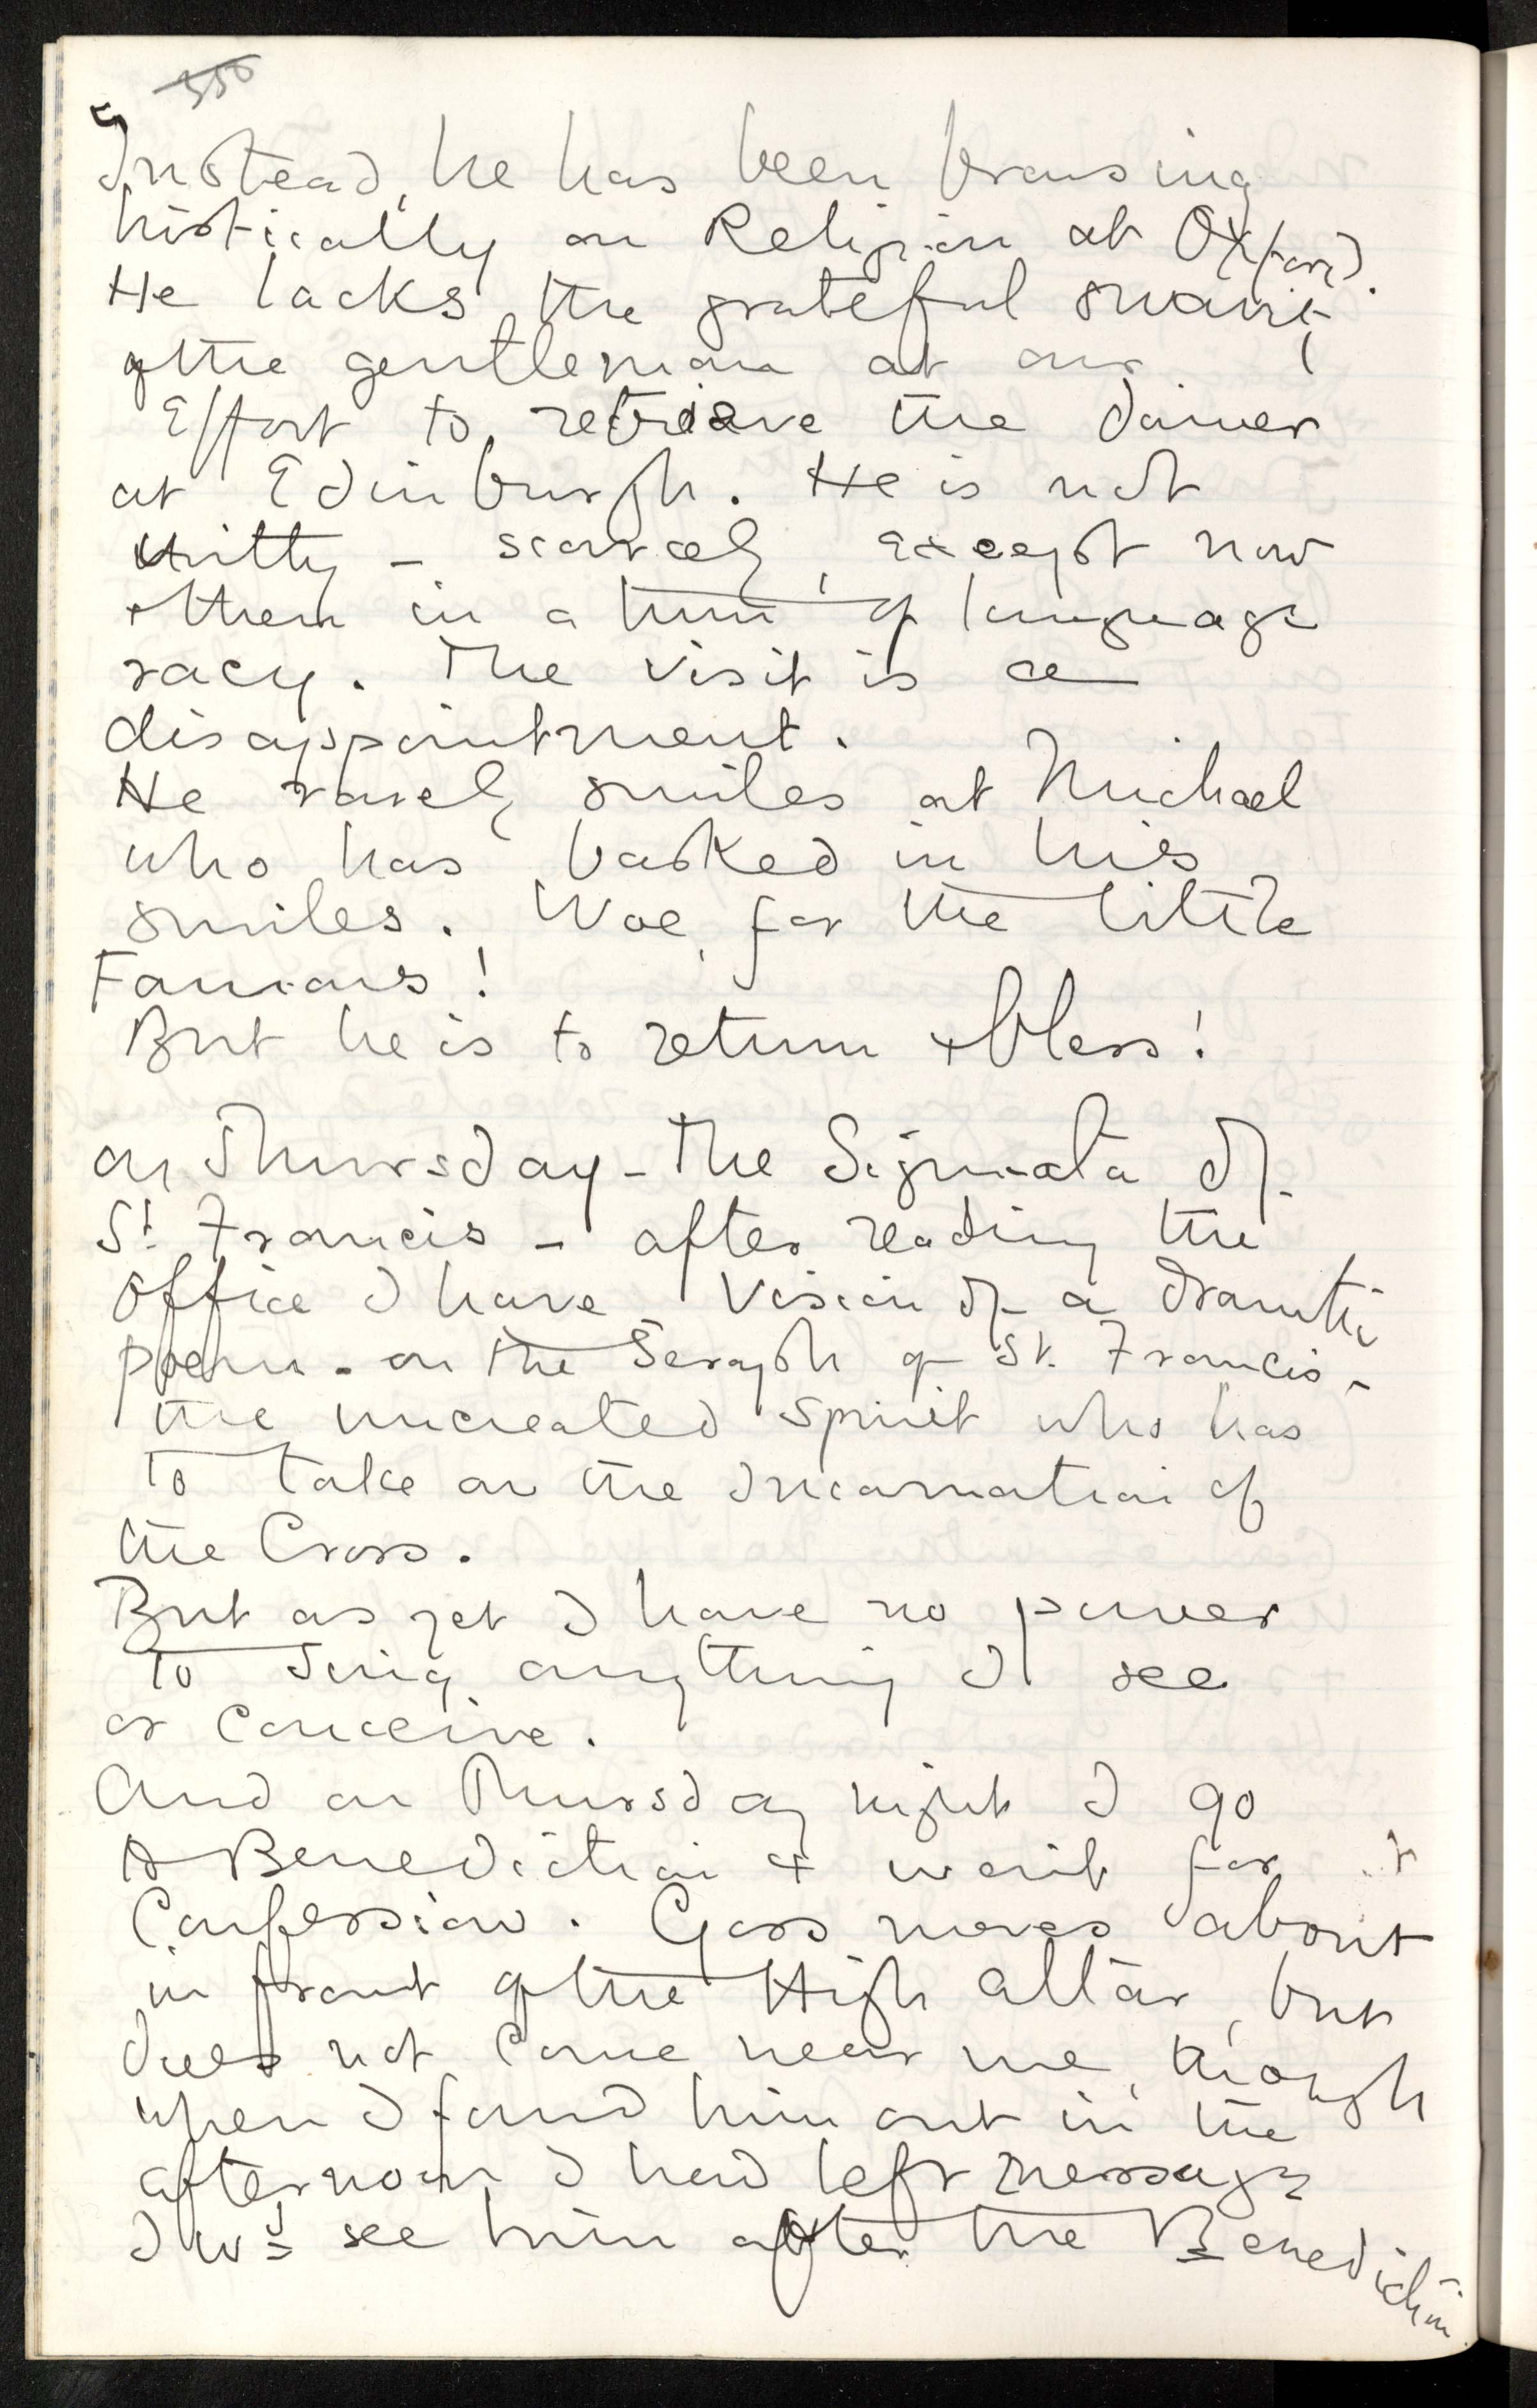 350
Instead, he has been browsing
histrically on Religion at Oxford.
He lacks the grateful suavity
of the gentleman at our
Effort to retrieve the dinner
at Edinburgh. He is not
witty – scarcely, except now
+ then in a turn of language
racy. The visit is a
disappointment.
He rarely smiles at Michael
who has basked in his
smiles. Woe, for the little
Famous!
But he is to return + bless!
On Thursday – The Stigmata of
St. Francis – after reading the
Office I have Vision of a dramatic
poem – on the Seraph of St. Francis –
the uncreated Spirit who has
to take on the Incarnation of
the Cross.
But as yet I have no power
to sing anything I see
or conceive.
And on Thursday night I go
to Benediction + wait for
Confession. Goss moves about
in front of the High Altar, but
does not come near me, though
when I found him out in the
afternoon I had left message
I wd see him after the Benediction